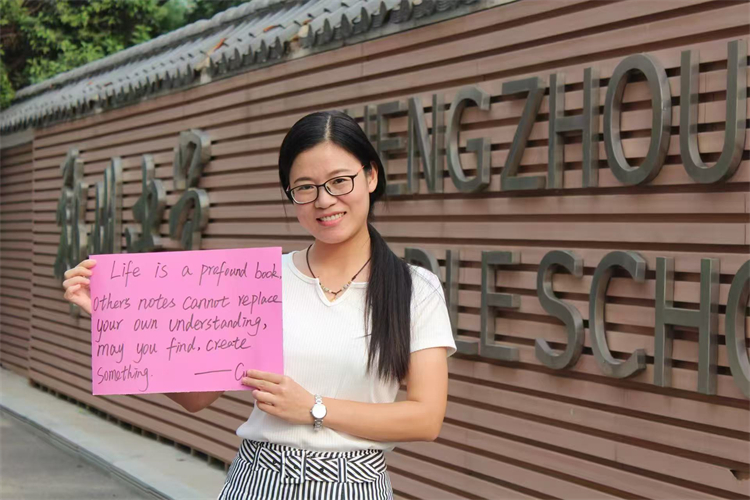 HENGZHOU
DLE SCHO
Life is a profound book
others notes cannot replace
your own understanding,
may you find, create
something. —— C